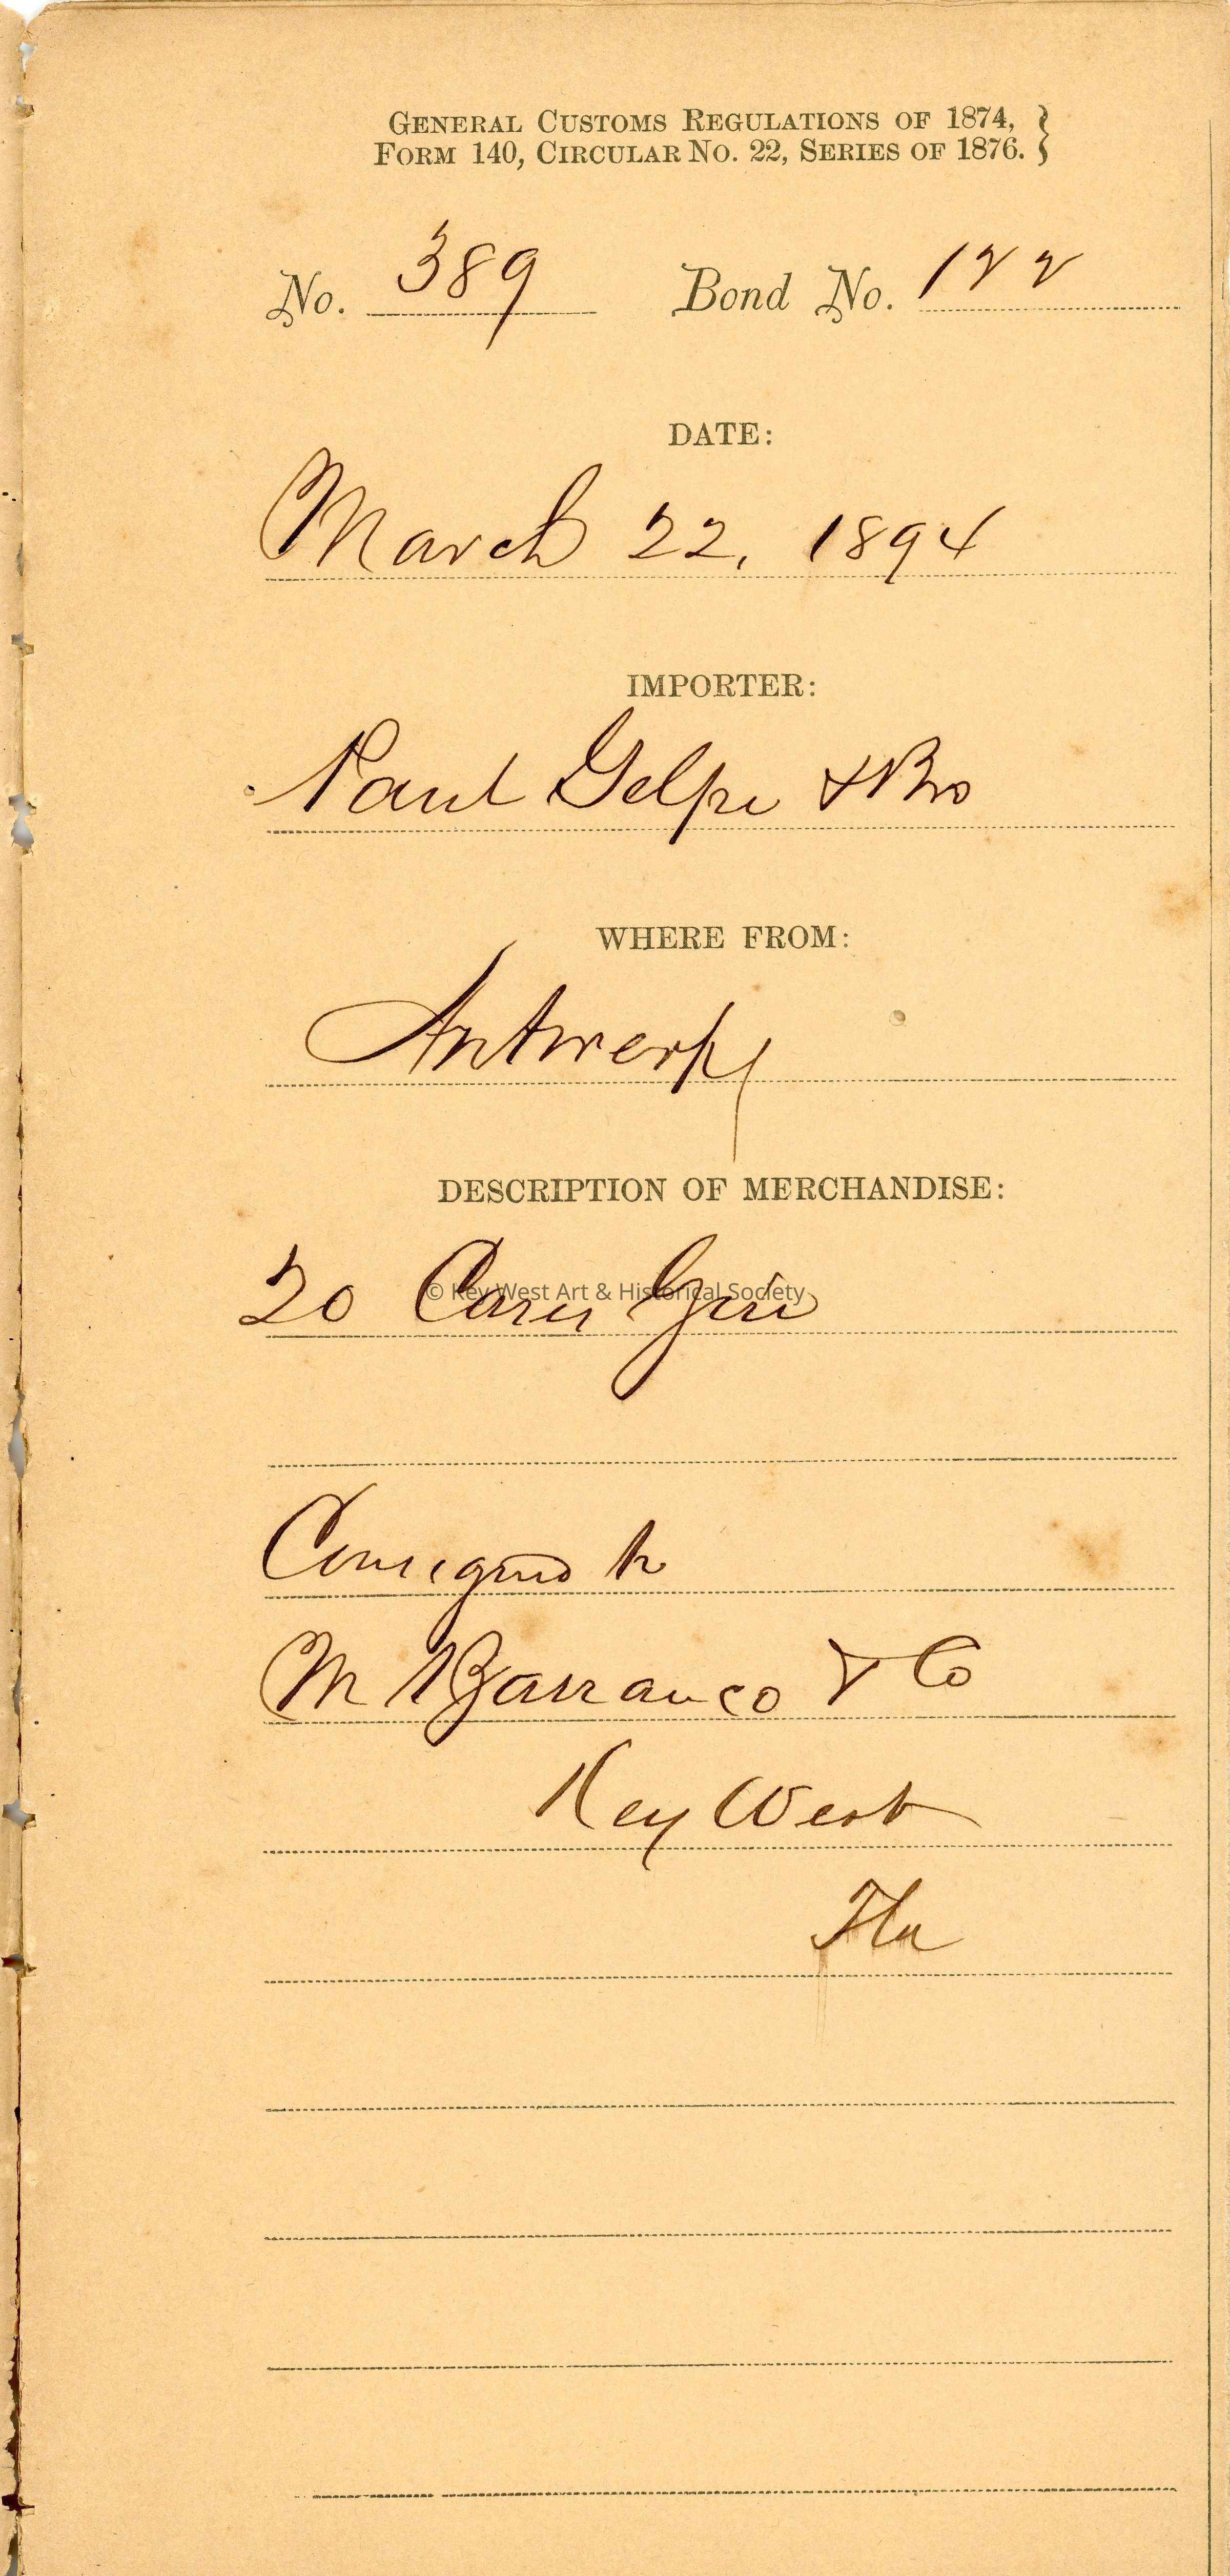 GENERAL CUSTOMS REGULATIONS OF 1874,
FORM 140, CIRCULAR NO. 22, SERIES OF 1876. }
No. 389 Bond No. 122
DATE:
March 22, 1894
IMPORTER:
Paul Gelpi & Bro
WHERE FROM:
Antwerp
DESCRIPTION OF MERCHANDISE:
20 Cases Gin
© Key West Art & Historical Society
Consigned to
M Barranco & Co
Key West
Fla